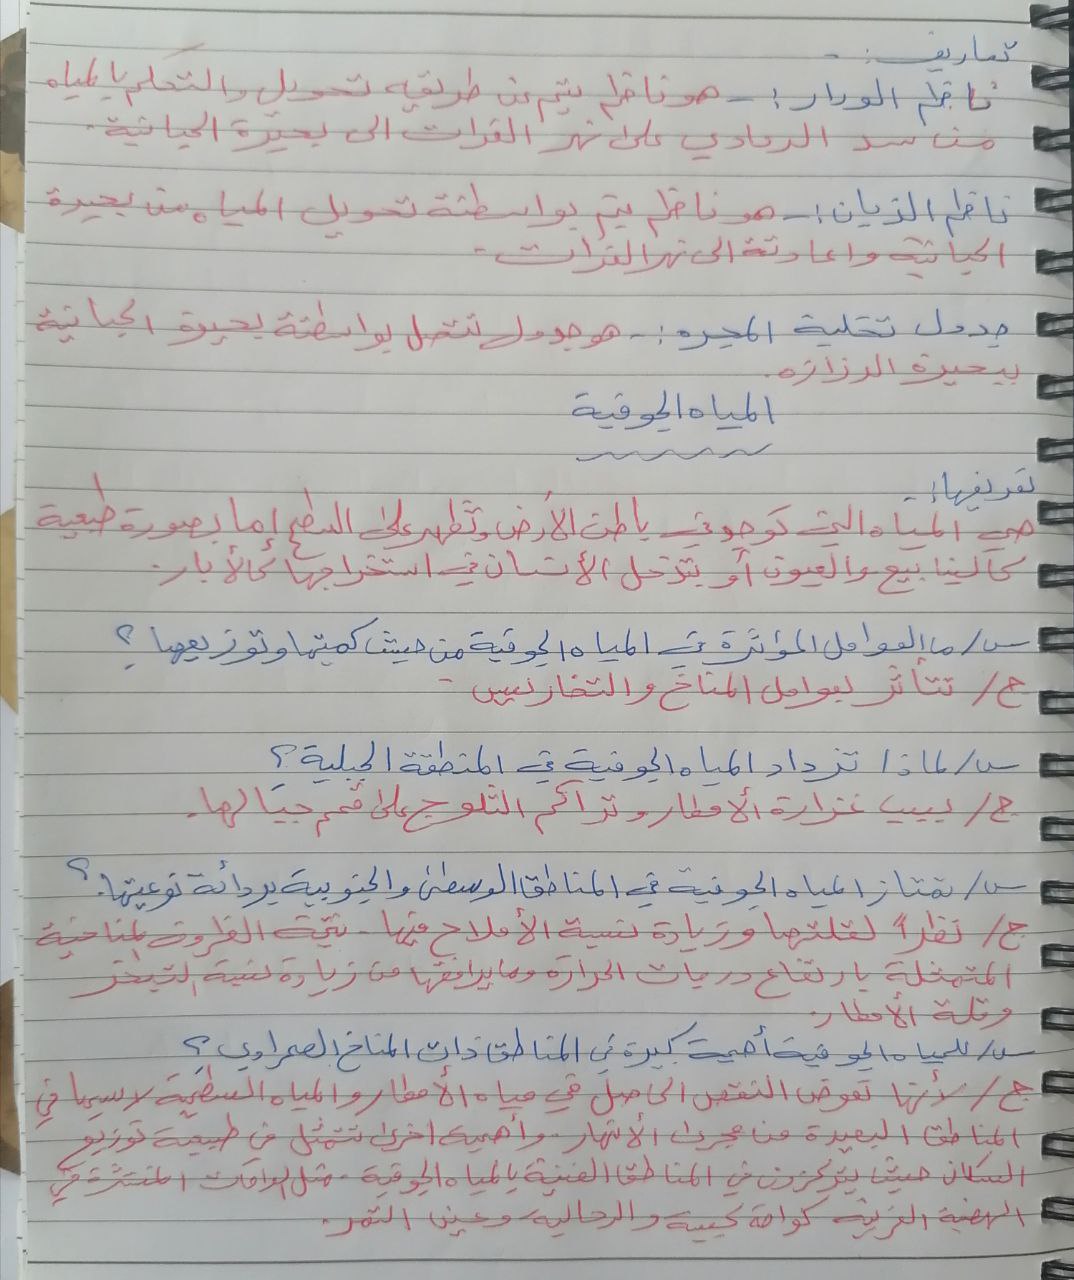 تعاريف :-
ناظم الورار :- هو ناظم يتم عن طريقه تحويل والتحكم بالمياه
من سد الرمادي على نهر الفرات الى بحيرة الحبانية.
ناظم الذبان :- هو ناظم يتم بواسطتة تحويل المياه من بحيرة
الحبانية واعادتة الى نهر الفرات.
جدول تخلية المجره :- هو جدول تتصل بواسطتة بحيرة الحبانية
ببحيرة الرزازه.
المياه الجوفية
تعريفها :-
هي المياه التي توجد في باطن الأرض وتظهر على السطح إما بصورة طبعية
كالينابيع والعيون أو يتدخل الأنسان في استخراجها كالأبار.
س/ ما العوامل المؤثرة في المياه الجوفية من حيث كميتها وتوزيعها ؟
ج/ تتأثر بعوامل المناخ والتضاريس -
س/ لماذا تزداد المياه الجوفية في المنطقة الجبلية ؟
ج/ بسبب غزارة الأمطار وتراكم الثلوج على قمم جبالها.
س/ تمتاز المياه الجوفية في المناطق الوسطى والجنوبية بردائة نوعيتها. ؟
ج/ نظراً لقلتها وزيادة نسبة الأملاح فيها - نتيجة الظروف المناخية
المتمثلة بارتفاع درجات الحرارة وما يرافقها من زيادة نسبة التبخر
وقلة الأمطار.
س/ للمياه الجوفية أهمية كبيرة في المناطق ذات المناخ الصحراوي ؟
ج/ لأنها تعوض النقص الحاصل في مياه الأمطار والمياه السطحية لاسيما في
المناطق البعيدة عن مجرى الأنهار - وأهمية اخرى تتمثل في طبيعة توزيع
السكان حيث يتركزون في المناطق الغنية بالمياه الجوفية - مثل الواحات المنتشرة في
الهضبة الغربية كواحة كبيسة والرحالية وعين التمر.